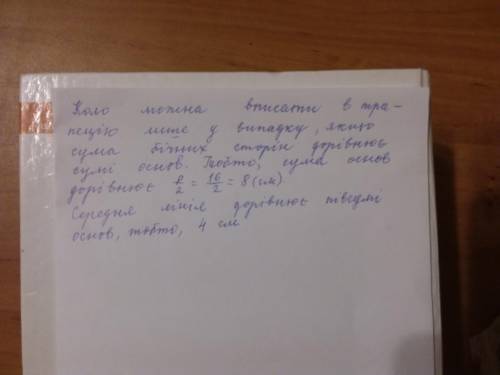 Коло можна вписати в тра-
пецію лише у випадку, якщо
сума бічних сторін дорівнює
сумі основ. Тобто, сума основ
дорівнює P/2 = 16/2 = 8 (см)
Середня лінія дорівнює півсумі
основ, тобто, 4 см